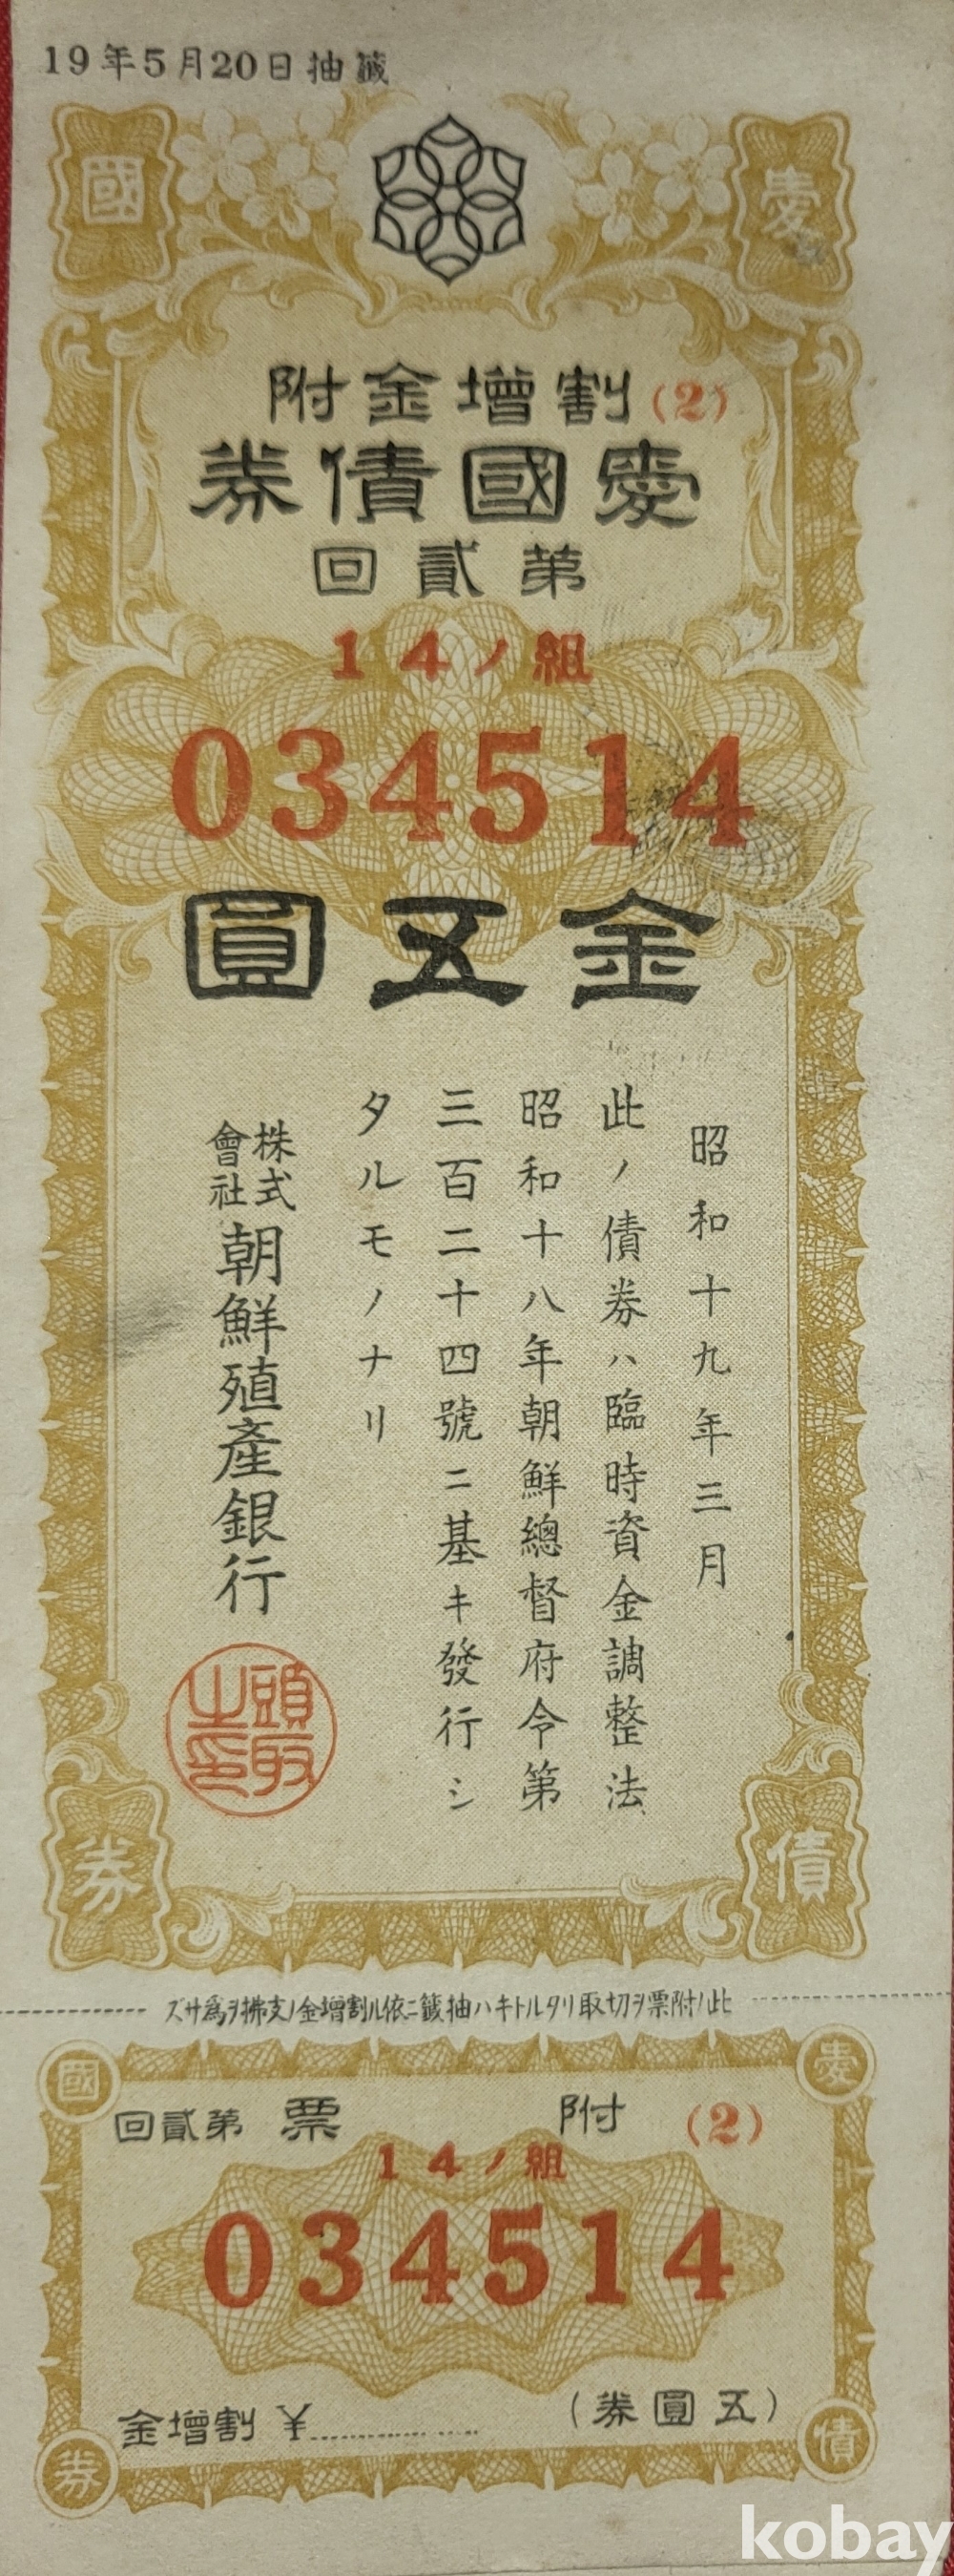 19年5月20日抽籤
愛國
割增金附(2)
愛國債券
第貳回
14ノ組
034514
金五圓
昭和十九年三月
此ノ債券ハ臨時資金調整法
昭和十八年朝鮮總督府令第
三百二十四號ニ基キ發行シ
タルモノナリ
株式會社朝鮮殖產銀行
頭取之印
債券
此ノ附票ヲ切取リタルトキハ抽籤ニ依ル割增金ノ支拂ヲ爲サズ
愛國
(2)附票第貳回
14ノ組
034514
(五圓券)
割增金 ¥
債券
kobay